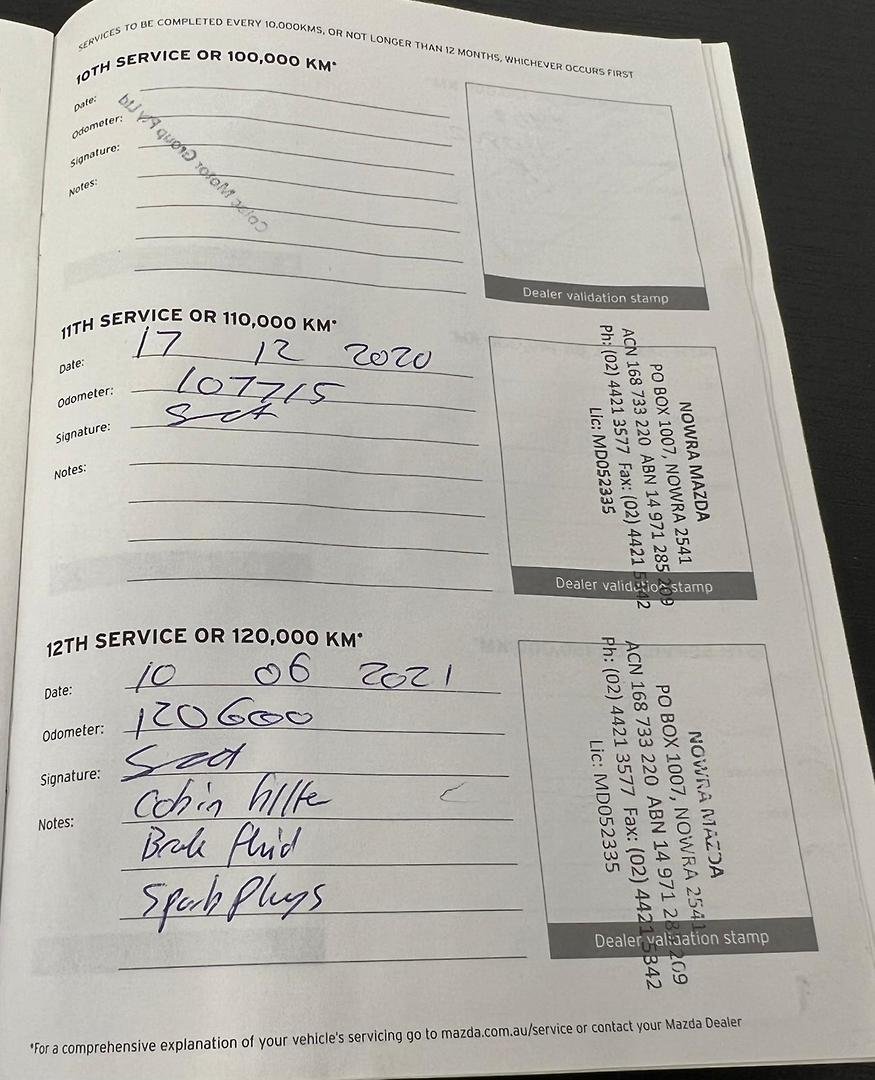 SERVICES TO BE COMPLETED EVERY 10.000KMS, OR NOT LONGER THAN 12 MONTHS, WHICHEVER OCCURS FIRST
10TH SERVICE OR 100,000 KM*
Date:
Odometer:
Signature:
Notes:
Motor Group Pty Ltd
Dealer validation stamp
11TH SERVICE OR 110,000 KM*
Date: 17 12 2020
Odometer: 107715
Signature:
Notes:
NOWRA MAZDA
PO BOX 1007, NOWRA 2541
ACN 168 733 220 ABN 14 971 285 209
Ph: (02) 4421 3577 Fax: (02) 4421 5342
Lic: MD052335
Dealer validation stamp
12TH SERVICE OR 120,000 KM*
Date: 10 06 2021
Odometer: 120600
Signature:
Notes: Cabin filter
Brake fluid
Spark Plugs
NOWRA MAZDA
PO BOX 1007, NOWRA 2541
ACN 168 733 220 ABN 14 971 285 209
Ph: (02) 4421 3577 Fax: (02) 4421 5342
Lic: MD052335
Dealer validation stamp
*For a comprehensive explanation of your vehicle's servicing go to mazda.com.au/service or contact your Mazda Dealer